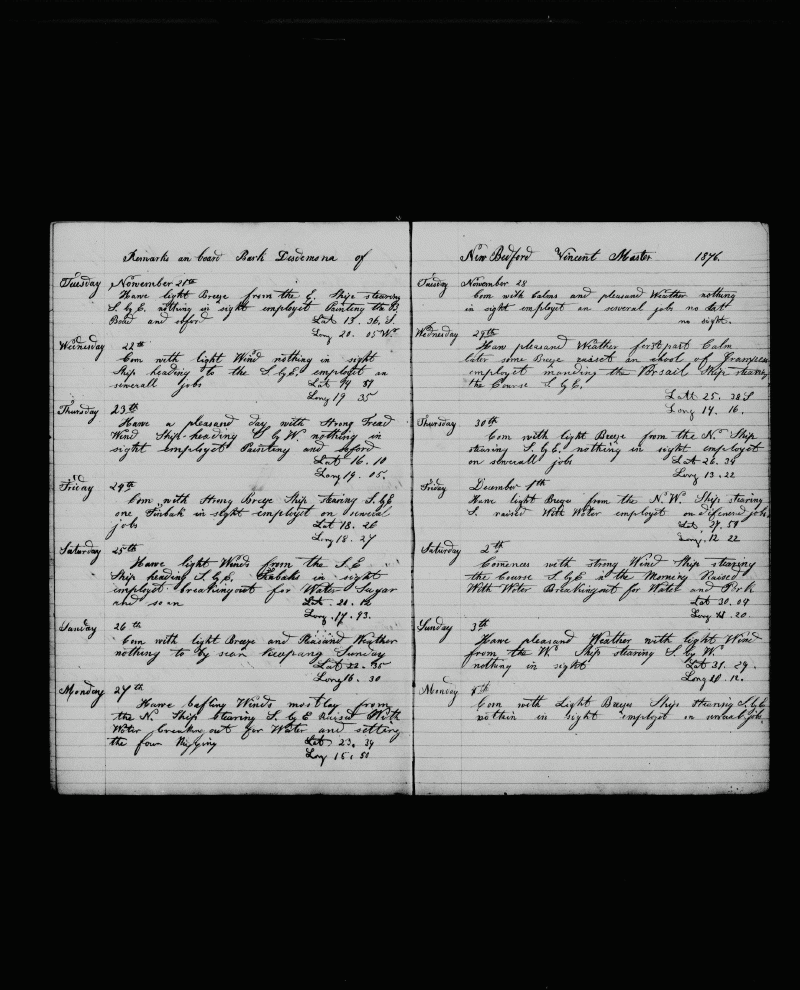 Remarks on board Bark Desdemona of
Tuesday November 21th
Have light Breze from the E. Ship stearing
S. by E. nothing in sight employot Painting the B
Boad and soford Lat 13. 36. S.
Long 20. 05 W
Wednesday 22th
Com with light Wind nothing in sight
Ship heading to the S. by E. employt on
severall jobs Lat 14 51
Long 19 35
Thursday 23th
Have a pleasand day with Strong Tread
Wind Ship heading S by W. nothing in
sight employot Painting and soford
Lat 16. 10
Long 19. 05.
Friday 24th
Com with Strong Breze Ship stearing S. by E
one Finbak in sight employt on several
jobs Lat 18. 26
Long 18. 27
Saturday 25th
Have light Winds from the S. E
Ship heading S. by E. Finbaks in sight
employt breakingout for Water Sugar
and so on Lat. 20. 12
Long. 17. 93.
Sunday 26th
Com with light Breeze and Pleasand Weather
nothing to by sean keepang Sunday
Lat 22. 35
Long 16. 30
Monday 27th
Have bafling Winds mostlay from
the N. Ship stearing S. by E raised With
Water breakin out for Water and setting
the four Rigging Lat 23. 34
Long 15. 50
New Bedford Vincent Master 1876.
Tuesday November 28
Com with Calms and pleasand Weather nothing
in sight employt on several jobs no Lat
no sight.
Wednesday 29th
Have pleasand Weather forst part Calm
later some Breze raised an shool of Grampus
employt manding the Forsail Ship stearing
the Course S. by E.
Latt 25. 38 S
Long 14. 16.
Thursday 30th
Com with light Breeze from the N. Ship
stearing S. by E. nothing in sight employot
on severall jobs Lat 26. 34
Long 13. 22
Friday December 1th
Have light Breze from the N. W. Ship stearing
S. raised With Water employt on diferend jobs
Lat. 27. 58
Long. 12 22
Saturday 2th
Comences with strong Wind Ship stearing
the Course S. by E in the Morning Raised
With Water Breakingout for Water and Pork
Lat 30. 04
Long 11. 20.
Sunday 3th
Have pleasand Weather with light Wind
from the W. Ship stearing S. by W.
nothing in sight Lat 31. 29.
Long 10. 12.
Monday 4th
Com with Light Brezes Ship stearing S. by E.
nothin in sight employot on several jobs.